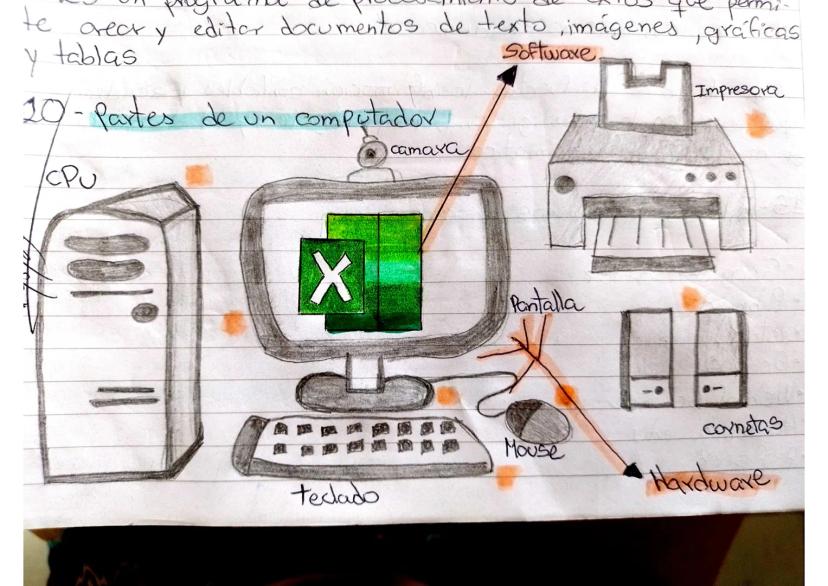 un programa de procesamiento de textos que permi-
te crear y editar documentos de texto, imágenes, gráficas
y tablas
Software
Impresora
20 - Partes de un computador
camara
CPU
X
Pantalla
cornetas
Mouse
Hardware
teclado